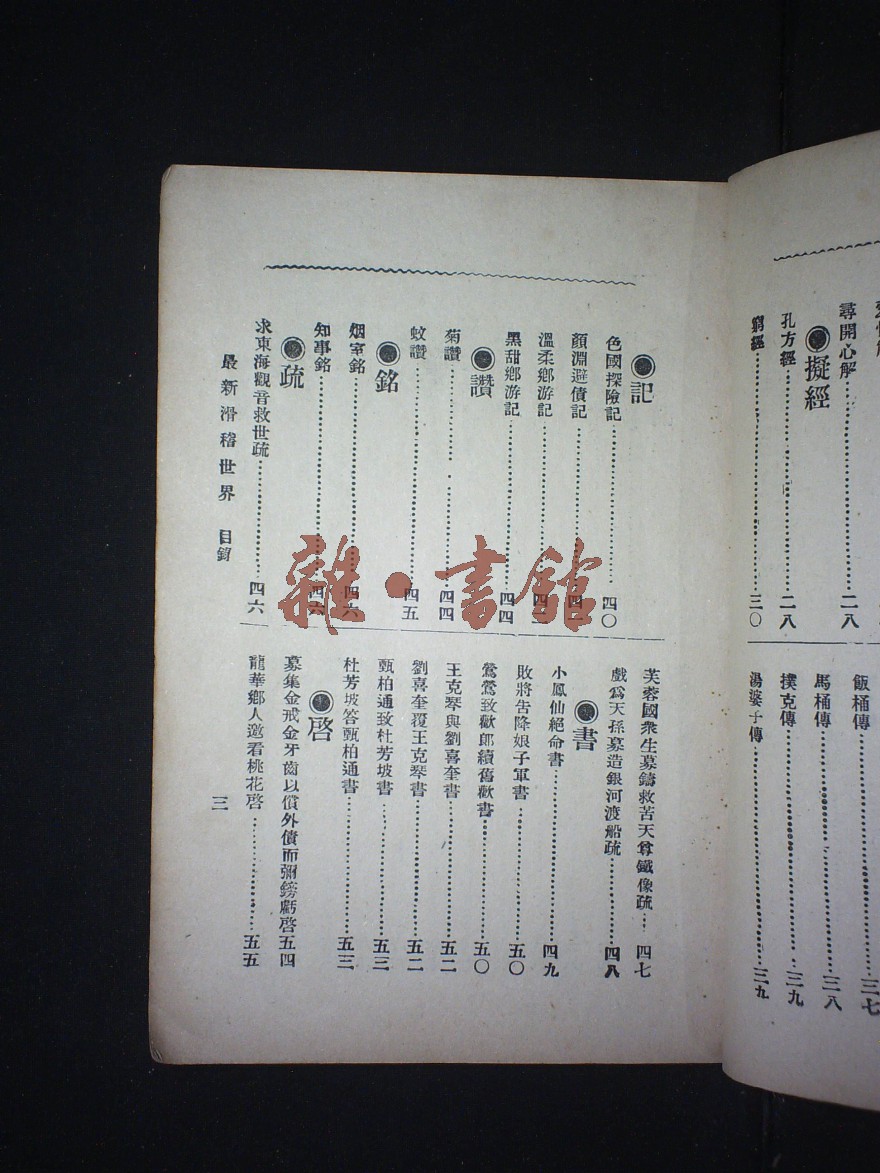 尋開心解⋯⋯二八
◉擬經
孔方經⋯⋯二八
窮經⋯⋯三〇
飯桶傳⋯⋯三七
馬桶傳⋯⋯三八
撲克傳⋯⋯三九
湯婆子傳⋯⋯三九
◉記
色國探險記⋯⋯四〇
顏淵避債記⋯⋯四
溫柔鄉游記⋯⋯四
黑甜鄉游記⋯⋯四四
◉讚
菊讚⋯⋯四四
蚊讚⋯⋯四五
◉銘
烟室銘⋯⋯四六
知事銘⋯⋯四六
◉疏
求東海觀音救世疏⋯⋯四六
芙蓉國衆生募鑄救苦天尊鐵像疏⋯四七
戲爲天孫募造銀河渡船疏⋯⋯四八
◉書
小鳳仙絕命書⋯⋯四九
敗將告降娘子軍書⋯⋯五〇
鶯鶯致歡郎續舊歡書⋯⋯五〇
王克琴與劉喜奎書⋯⋯五二
劉喜奎覆王克琴書⋯⋯五二
甄柏通致杜芳坡書⋯⋯五三
杜芳坡答甄柏通書⋯⋯五三
◉啓
募集金戒金牙齒以償外債而彌鎊虧啓五四
龍華鄉人邀看桃花啓⋯⋯五五
最新滑稽世界 目錄
三
雜·書館